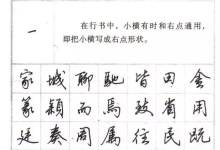 一
在行书中，小横有时和右点通用，
即把小横写成右点形状。
家 城 聊 驰 皆 田 舍
篆 颖 而 马 致 省 用
廷 奏 周 属 往 民 既